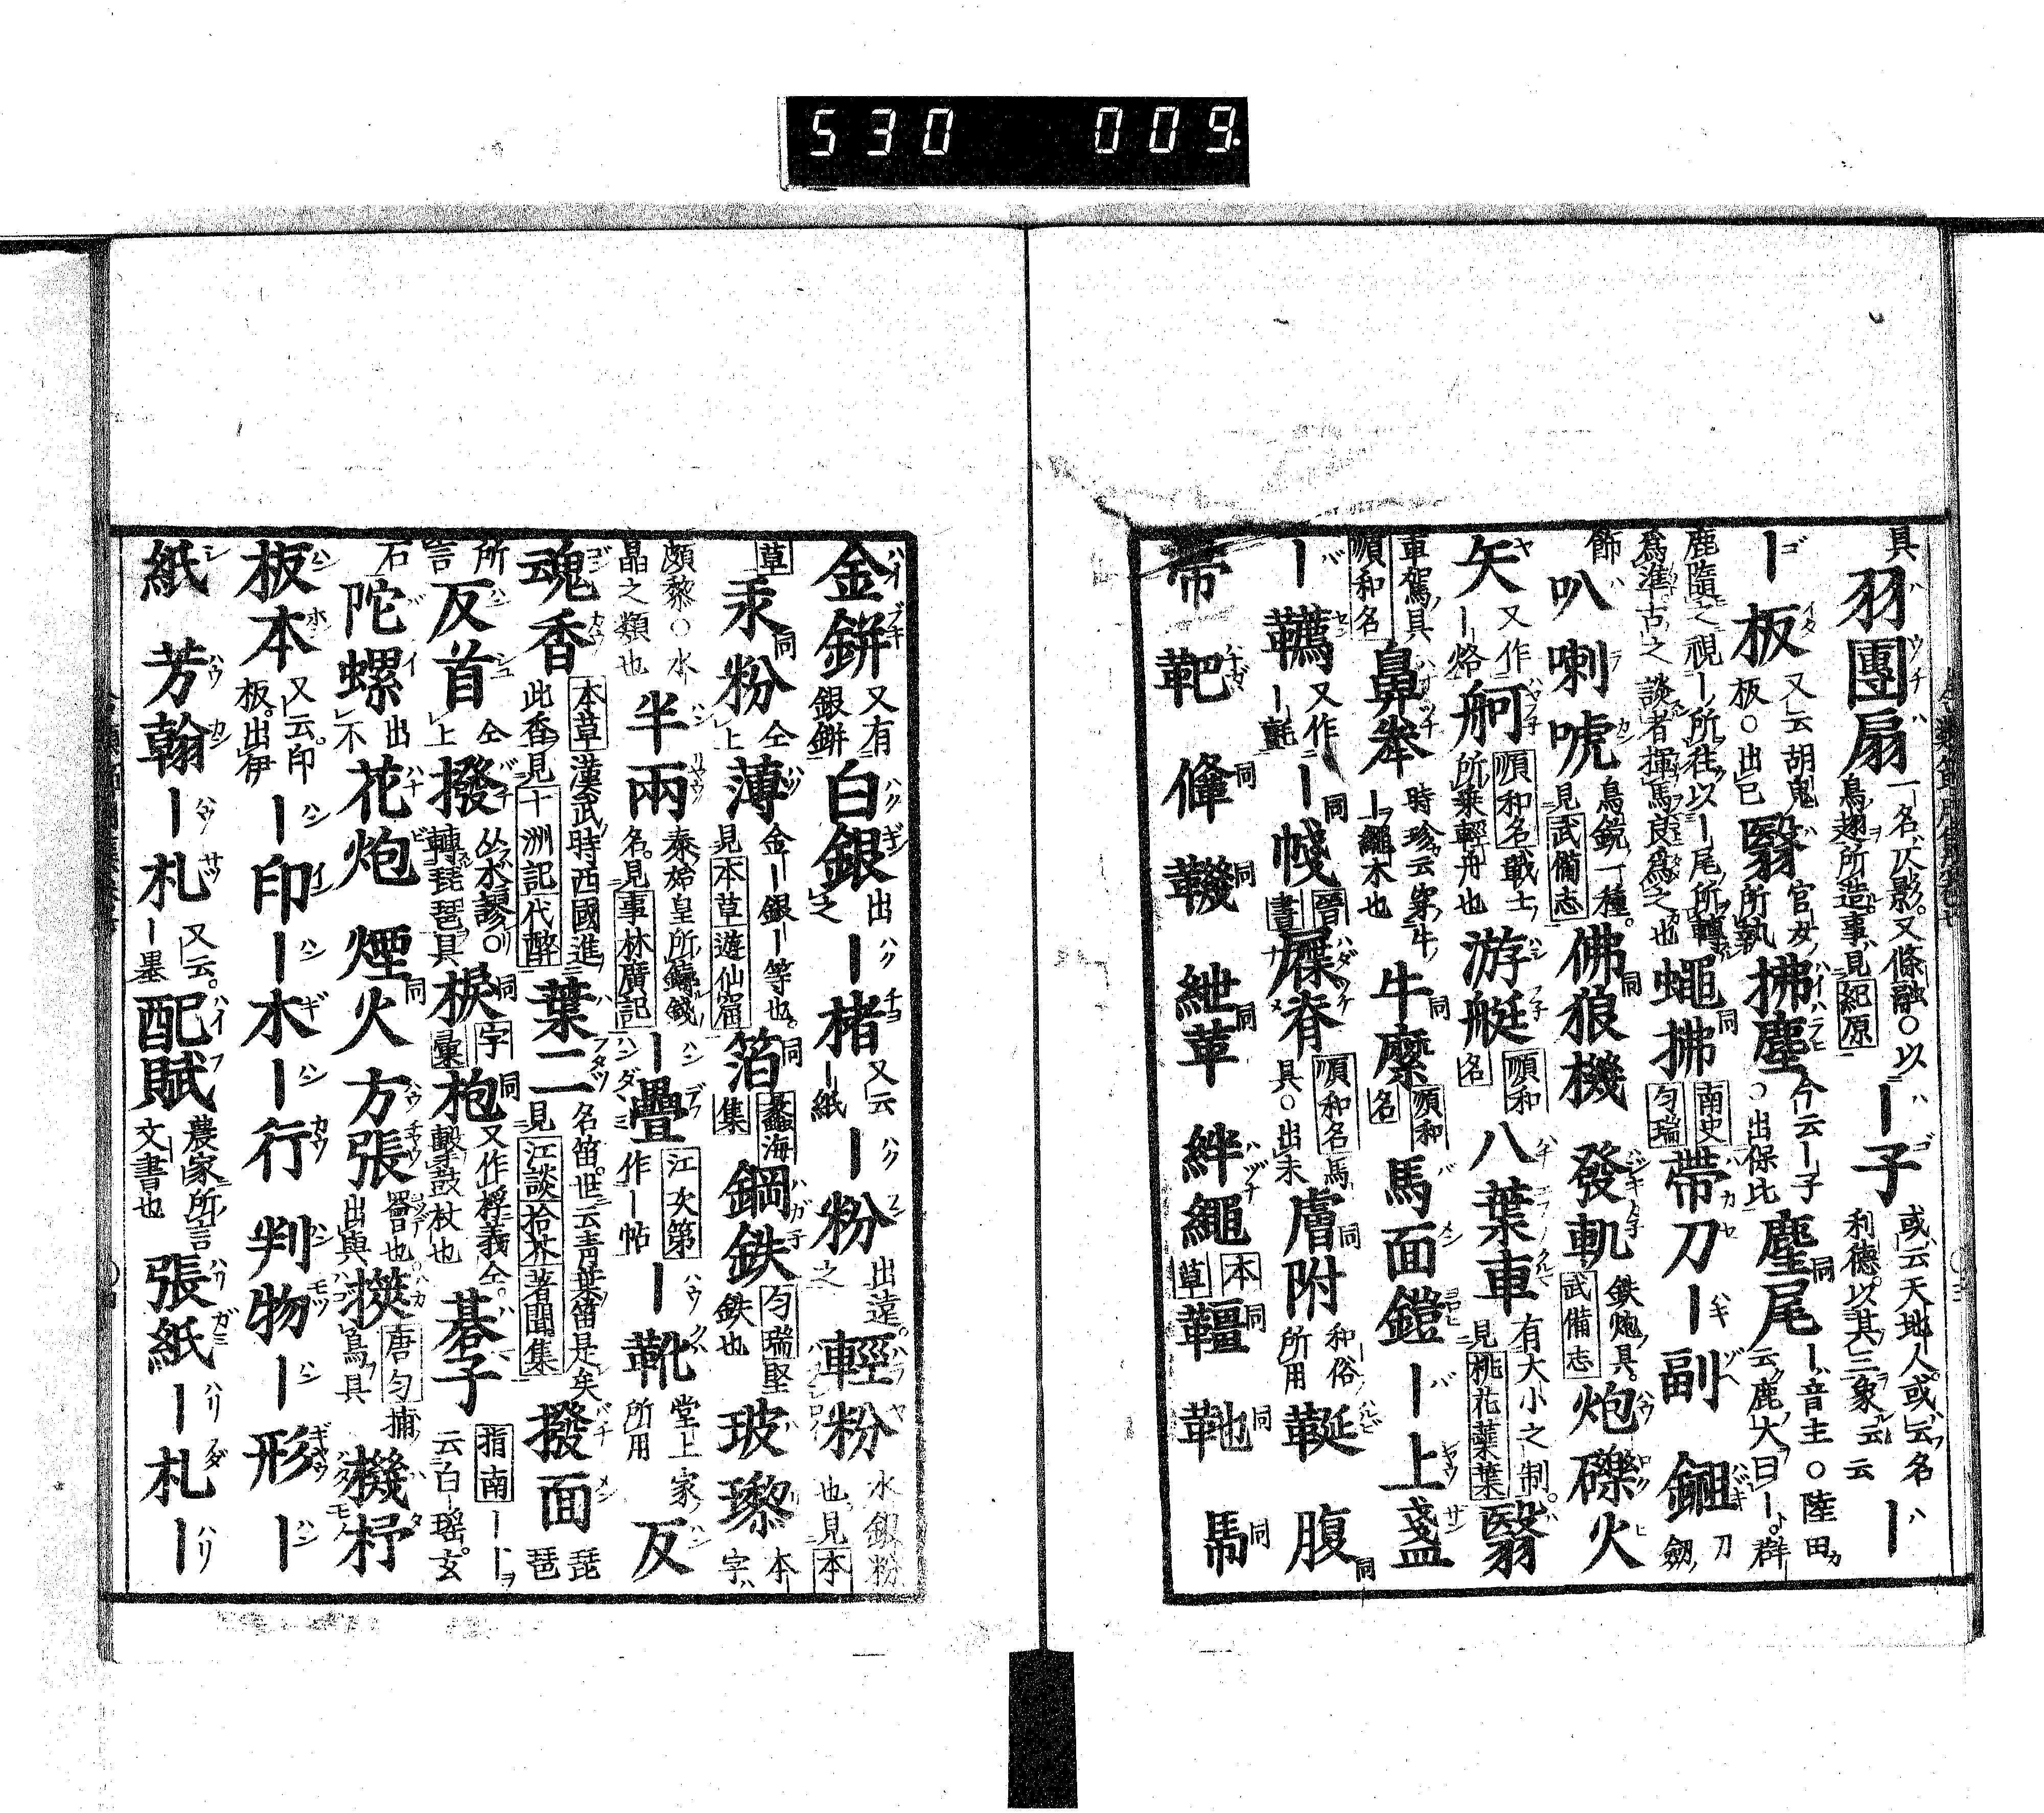 530 009.
具 羽團扇 一名仄影。又條融○以鳥翅所造事見紀原 ー子 或云天地人。或云名利德。以其三象云云 ー
ー板 又云胡鬼板○出巳 翳 官女所執 拂塵 今云ー子○出保比 麈尾 ー音主○陸田云鹿大曰ー。群
鹿隨之視ー所往以ー尾所轉爲準古之談者揮焉良爲之也 蠅拂 同 南史 匀瑞 帶刀 ー副 鎺 刀劔
飾 叭喇唬 鳥鏡一種。見武備志 佛狼機 同 發軌 鉄炮具。武備志 炮礫火
矢 又作ー烙 舸 順和名戰士所乘輕舟也 游艇 順和名 八葉車 有大小之制。見桃花蘂葉 翳
車駕具順和名 鼻桊 時珍云穿牛ー繩木也 牛縻 同 順和名 馬面鎧 ー上盞
ー韉 又作ー氈 ー帴 同 晉書 屧脊 順和名馬具○出未 膚附 同 和俗所用 䩥 腹 同
帶 靶 鞗 同 鞿 同 紲䩗 同 絆繩 本草 韁 同 䩛 同 馬 同
金鉼 又有銀鉼 白銀 出之 ー楮 又云ー紙 ー粉 出遠。之 輕粉 水銀粉也見本
草 汞粉 同 仝上 薄 金ー銀ー等也。見本草遊仙窟 箔 同 蠡海集 鋼鉄 匀瑞堅鉄也 玻瓈 本字
頗黎○水晶之類也 半兩 秦始皇所鑄錢名。見事林廣記 ー疊 江次第作ー帖 ー靴 堂上家所用 反
魂香 本草漢武時西國進此香見十洲記代醉 葉二 名笛。世云青葉笛是矣見江談拾芥著聞集 撥面 琵琶
所言 反首 仝上 撥 公木謬○轉琵琶具 棙 同 字彙 枹 同 又作桴義仝。擊鼓杖也 碁子 指南ー云白ー瑶玄
石 陀螺 出不 花炮 煙火 同 方張 罾也出與 㩞 唐匀捕鳥具 機杼
板本 又云印板。出伊 ー印 ー木 ー行 判物 ー形 ー
紙 芳翰 ー札 又云。ー墨 配賦 農家所言文書也 張紙 ー札 ー